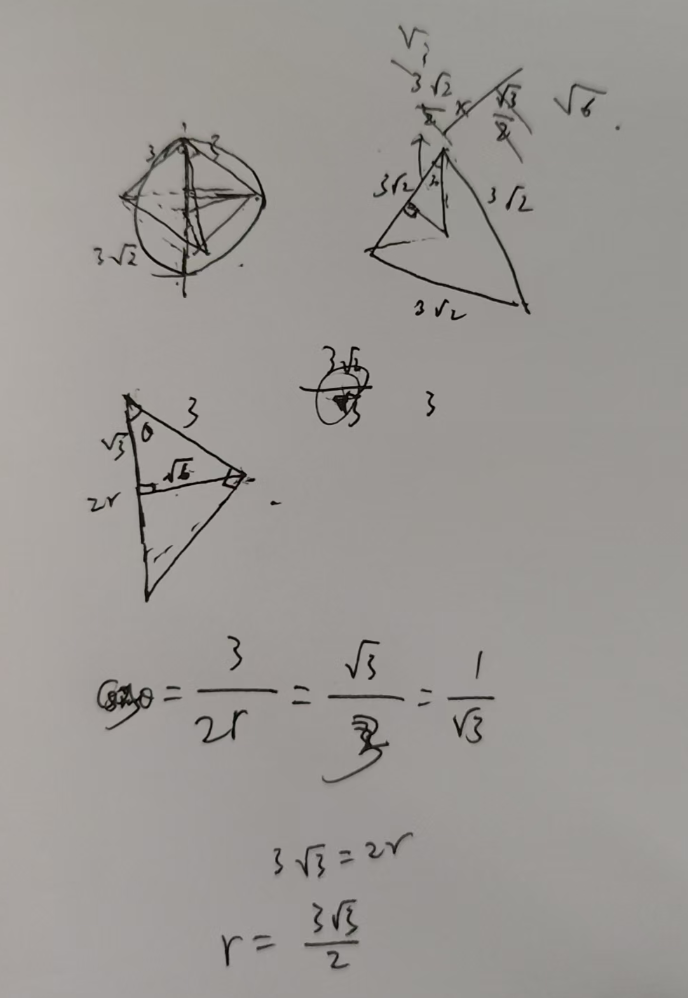 √3
3√2/2 × √3/2 √6 .
3 3
3√2
3√2 3√2
3√2
3√2
√3 3
3
√3 θ
√6
2r
cosθ = 3/2r = √3/3 = 1/√3
3√3 = 2r
r = 3√3/2